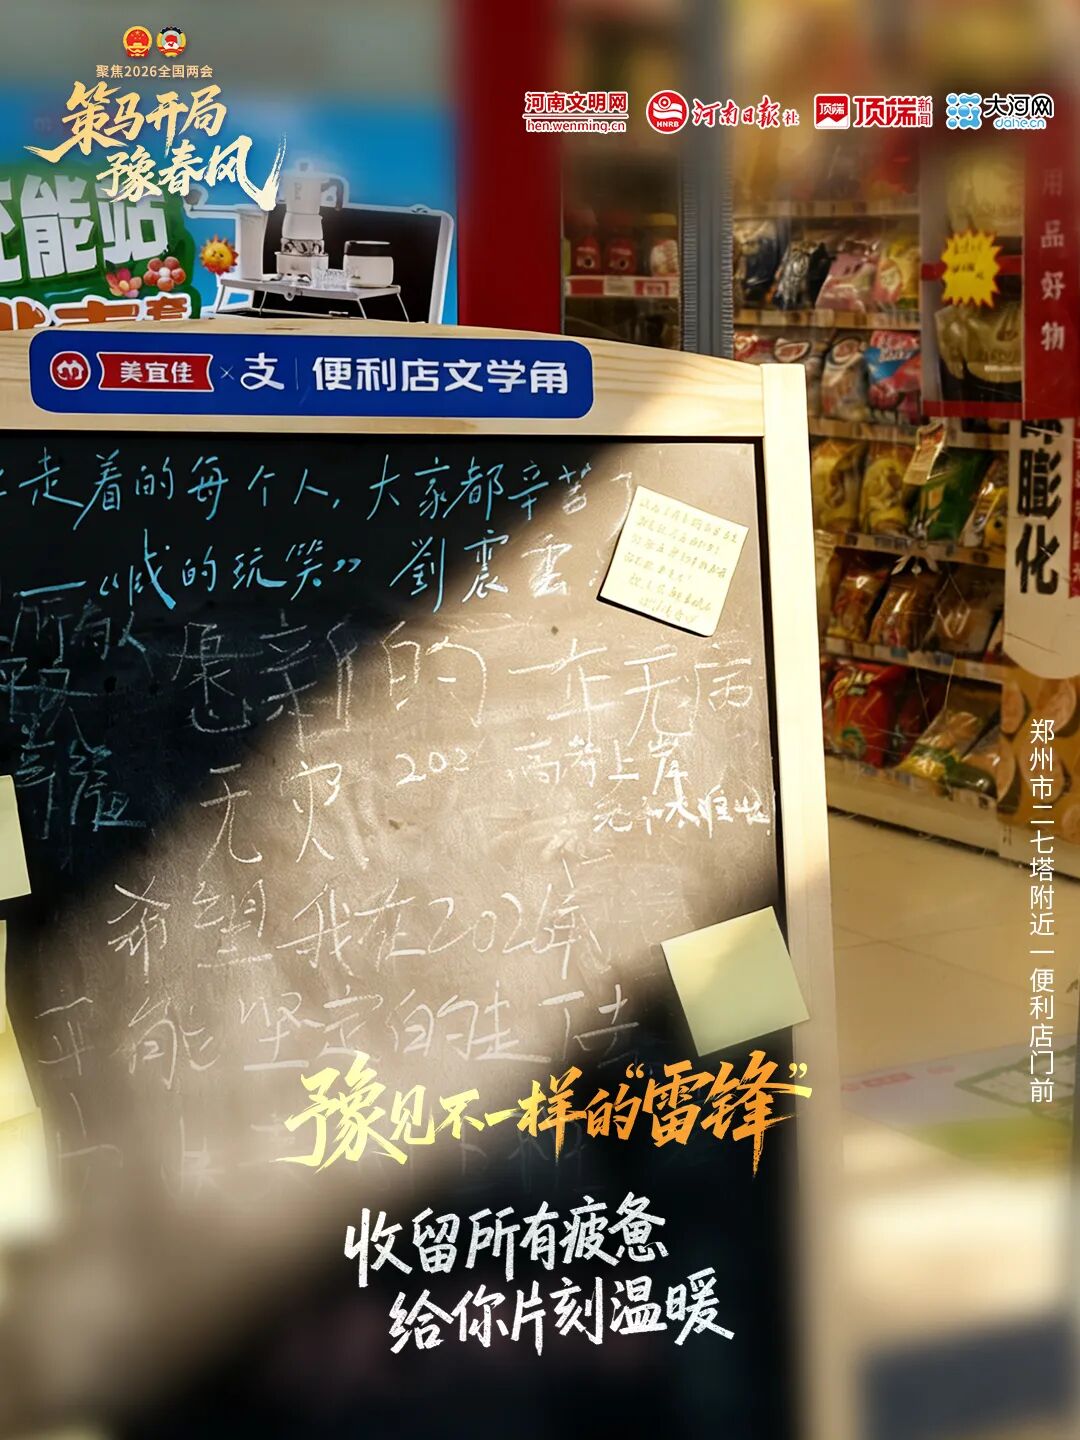 聚焦2026全国两会
策马开局
豫春风
河南文明网
hen.wenming.cn
HNRB
河南日报社
顶端
顶端新闻
大河网
dahe.cn
能站
用品好物
美宜佳×支|便利店文学角
走着的每个人,大家都辛苦了
一“贼的玩笑”劉震雲
所有人
是新的一年无病
无灾
202 高考上岸
希望我在2026年
能坚定的走下去
膨化
郑州市二七塔附近一便利店门前
豫见不一样的“雷锋”
收留所有疲惫
给你片刻温暖